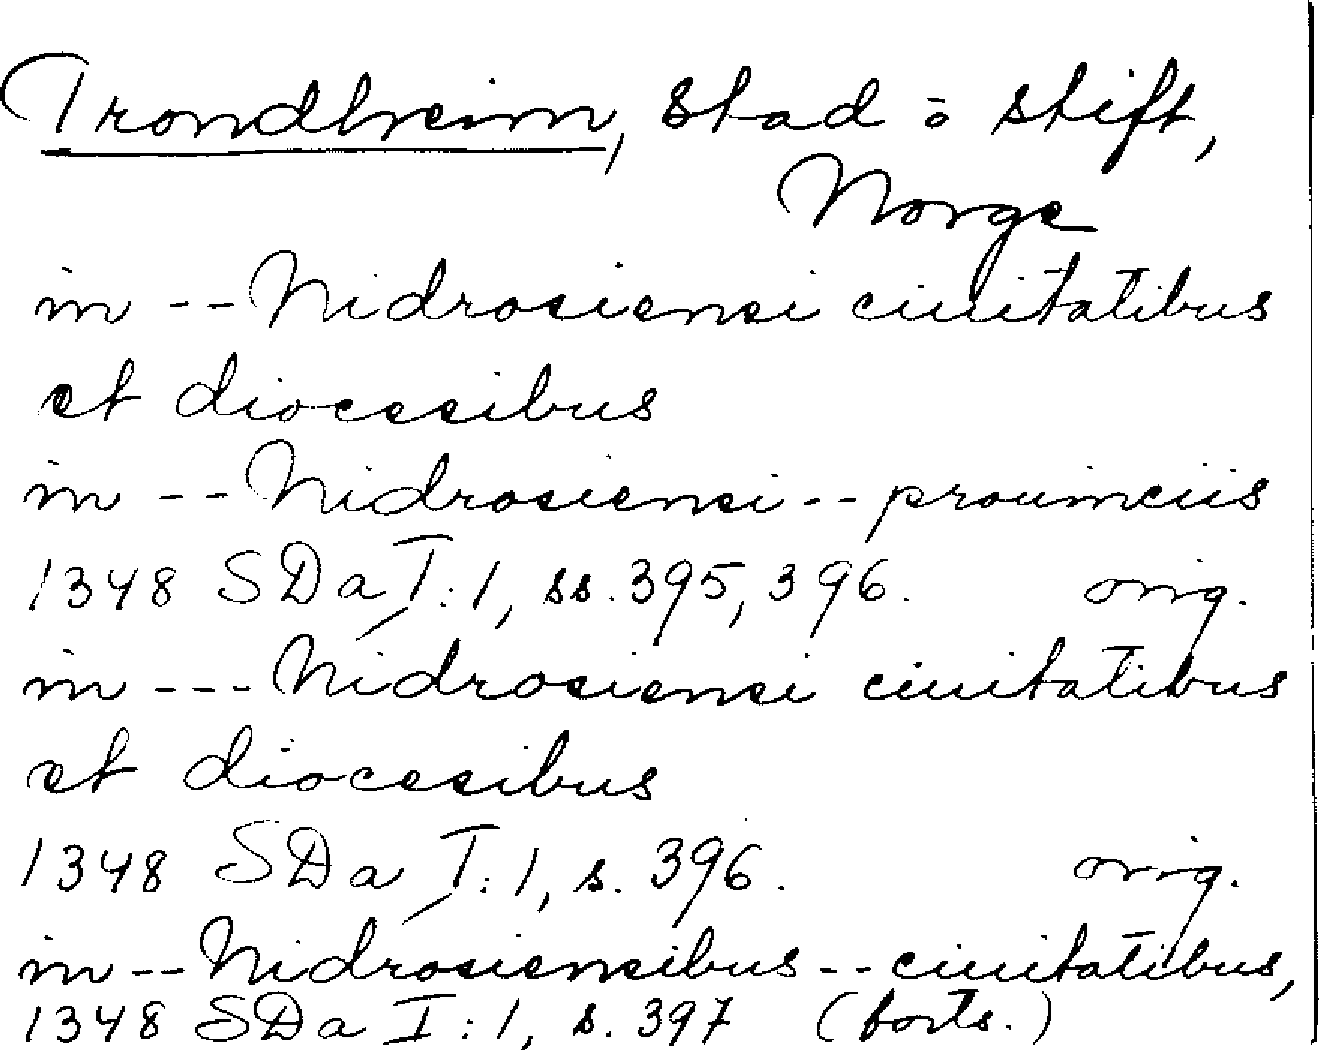 Trondheim, stad o stift,
Norge
in -- Nidrosiensi ciuitatibus
et diocesibus
in -- Nidrosiensi -- prouinciis
1348 SDa I:1, ss. 395, 396. orig.
in --- Nidrosiensi ciuitatibus
et diocesibus
1348 SDa I:1, s. 396. orig.
in -- Nidrosiensibus -- ciuitatibus,
1348 SDa I:1, s. 397 (forts.)